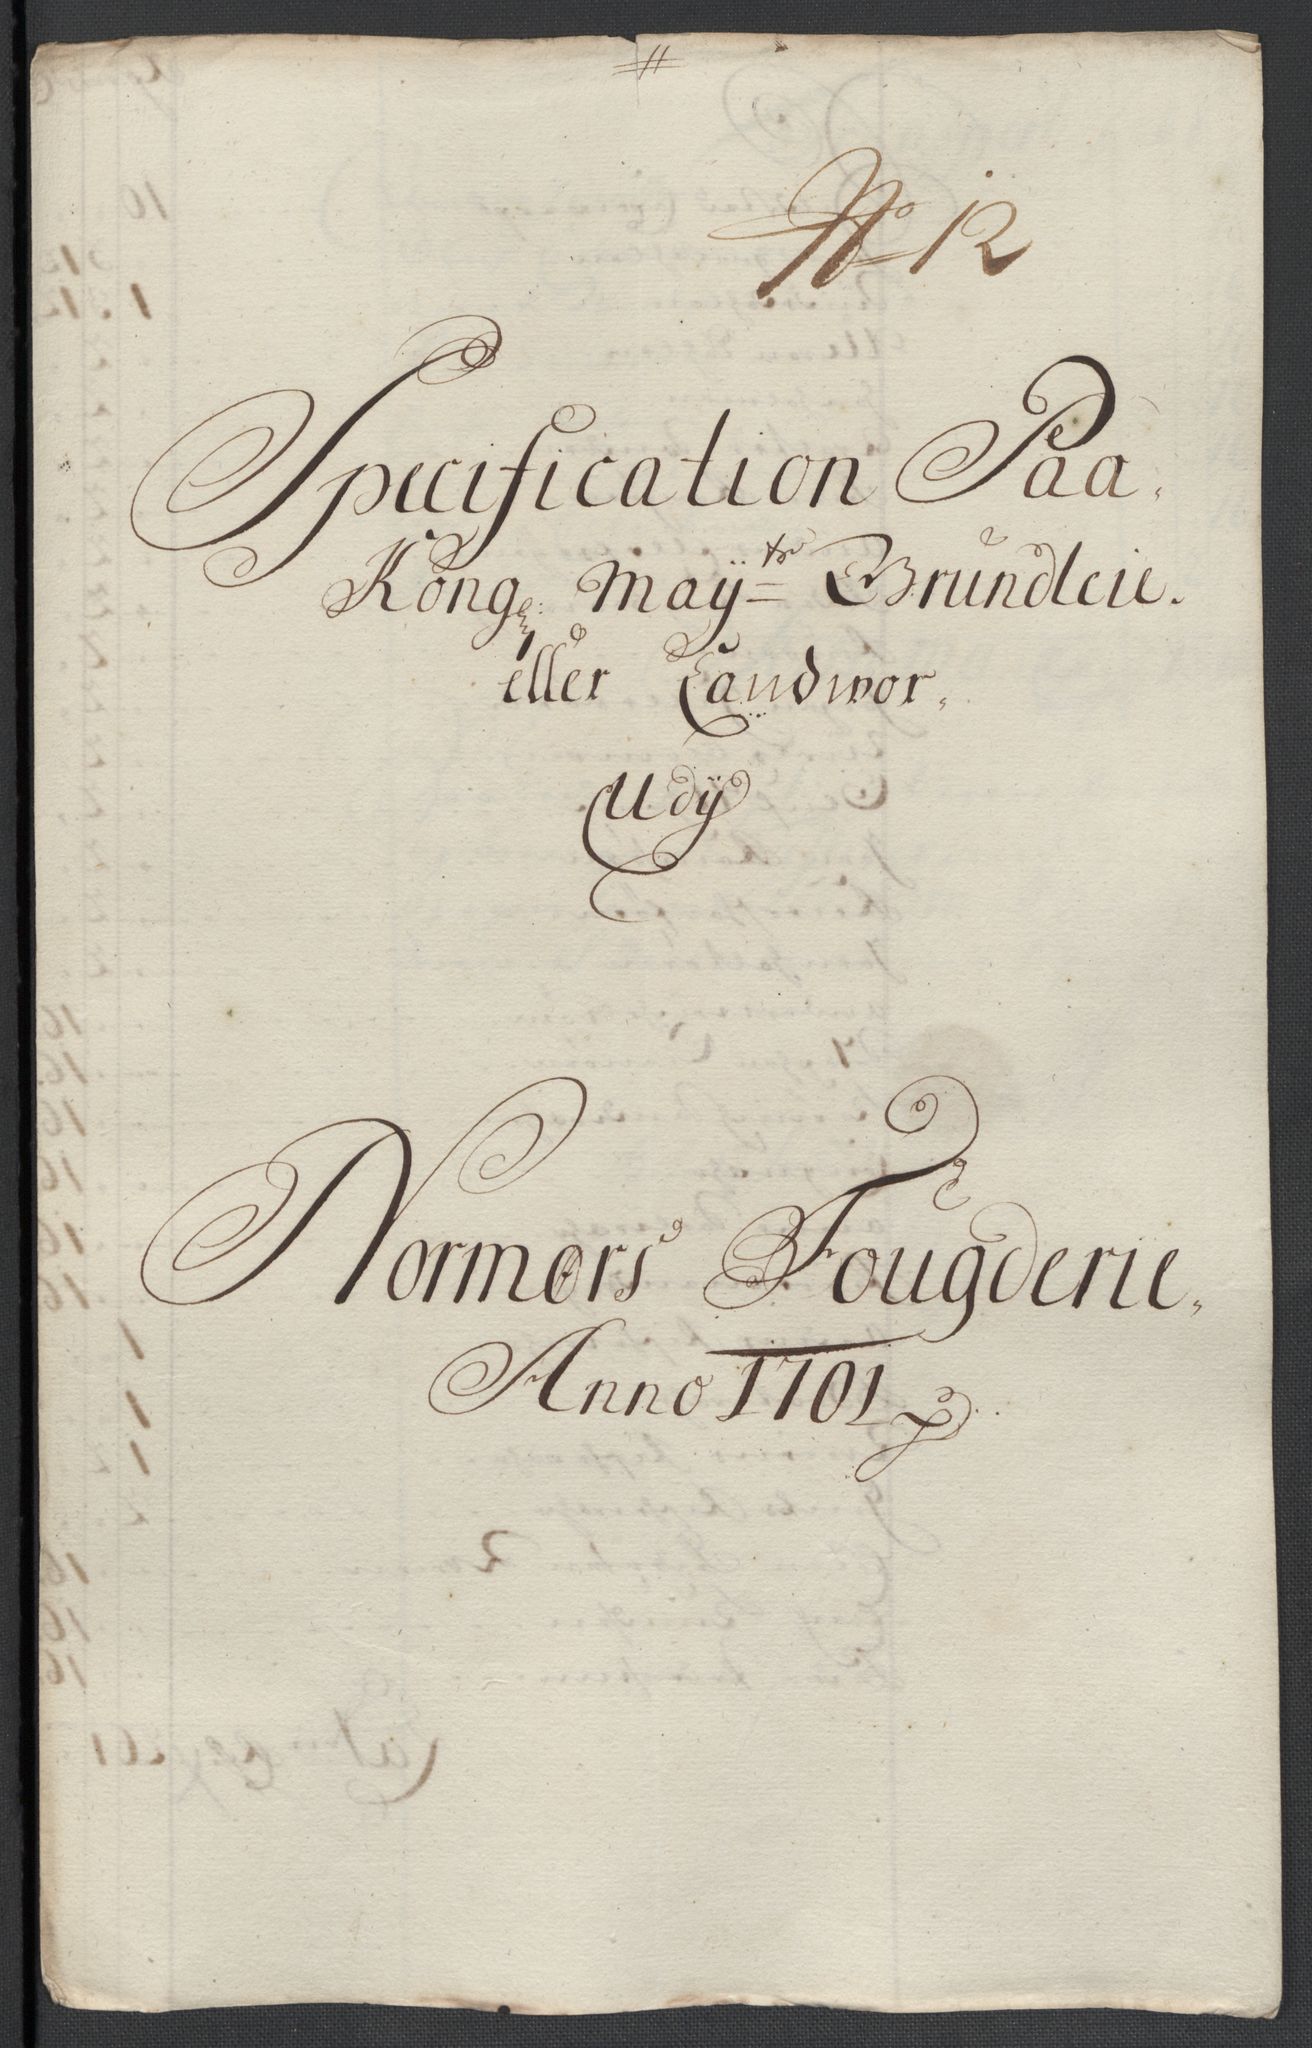 No 12
Specification Paa
Kong: Maÿtz Grundleie.
eller Landwor,
Udÿ
Normørs Fougderie,
Anno 1701